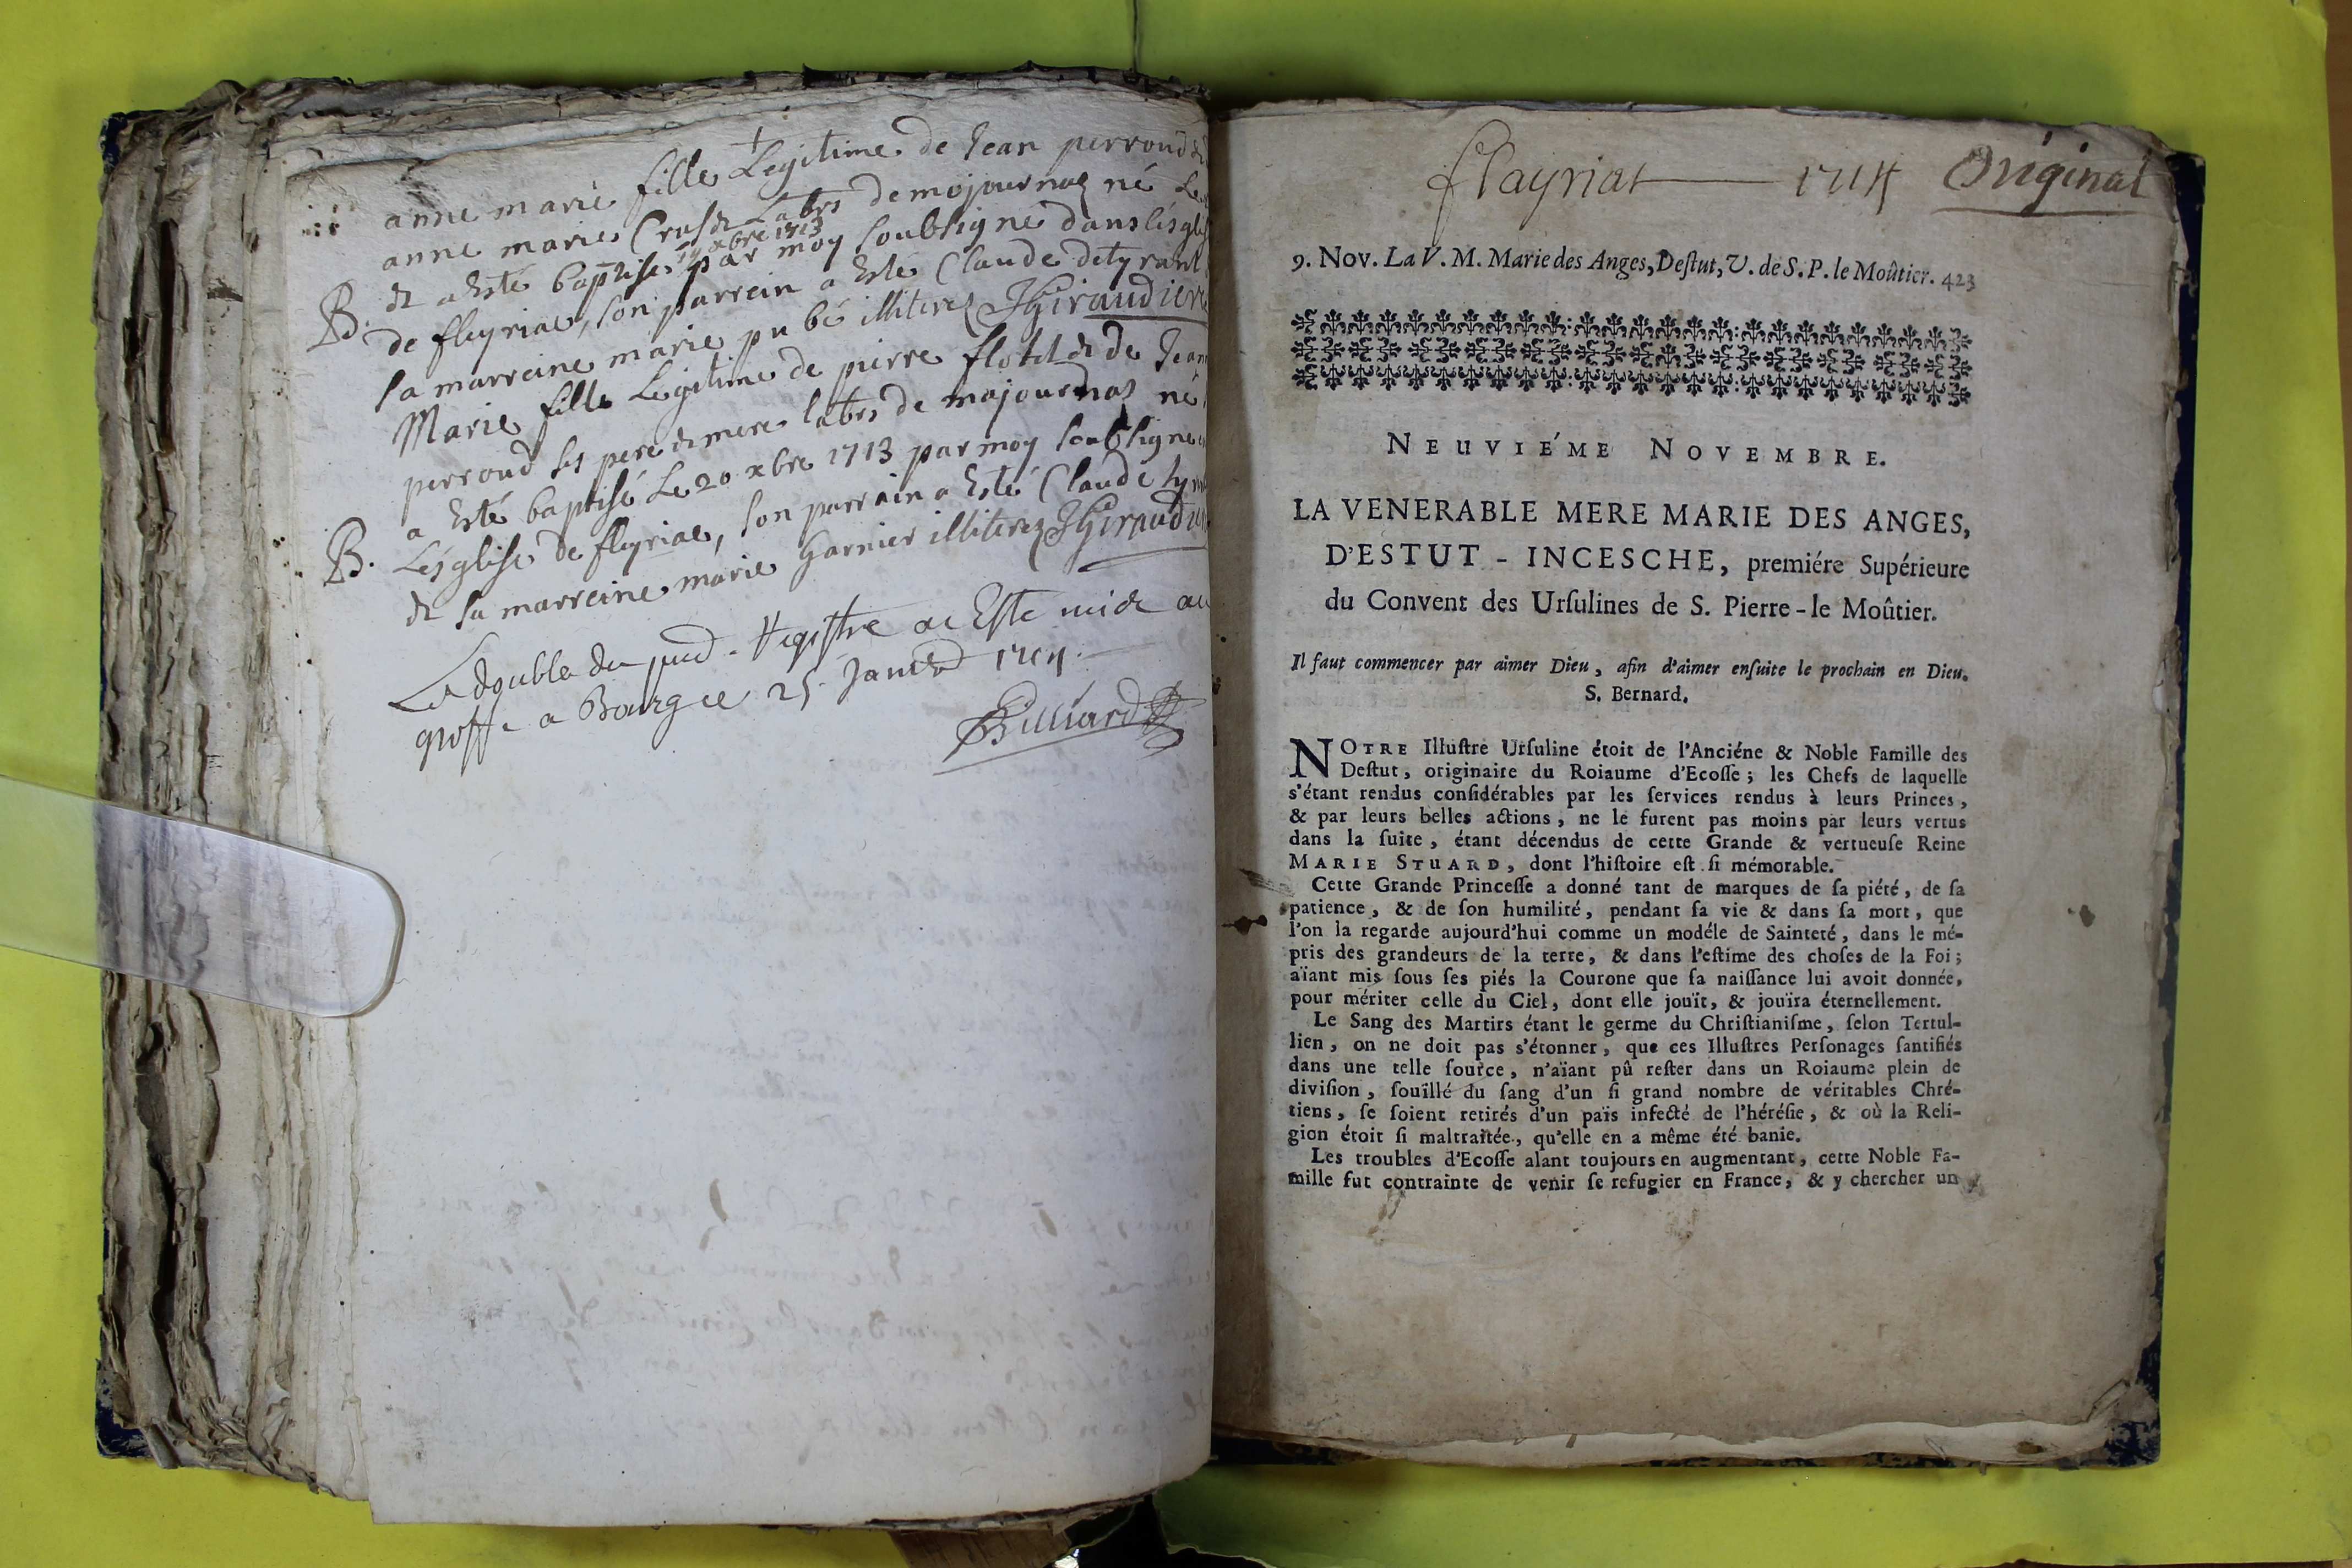 +
anne marie fille Legitime de Jean perroud &
anne marie Cras & Labrs de mojournas né Le
xbre 1713
B. & a esté baptise par moy soubsigné dans l'esglise
de fleyriae, son parrein a esté Claude detyrant
sa marreine marie pu bé illiterez JGiraudiere
Marie fille Legitime de pierre flotet & de Jean
perroud ses pere & mere labrs de majournas né
a esté baptisé Le 20 xbre 1713 par moy soubsigné
B. L'esglise de fleyriae, son parrain a esté Claude
& sa marreine marie Garnier illiterez JGiraudiere
Le double du pnd. Registre ac Este mide au
groffe a Bourg ce 25 Janv 1714
Billiard
flayriat 1714 Original
9. Nov. La V. M. Marie des Anges, Deſtut, U. de S. P. le Moûtier. 423
NEUVIÉME NOVEMBRE.
LA VENERABLE MERE MARIE DES ANGES,
D'ESTUT - INCESCHE, premiére Supérieure
du Convent des Urſulines de S. Pierre-le Moûtier.
Il faut commencer par aimer Dieu, afin d'aimer enſuite le prochain en Dieu.
S. Bernard.
NOTRE Illuſtre Urſuline étoit de l'Anciéne & Noble Famille des
Deſtut, originaire du Roiaume d'Ecoſſe; les Chefs de laquelle
s'étant rendus conſidérables par les ſervices rendus à leurs Princes,
& par leurs belles actions, ne le furent pas moins par leurs vertus
dans la ſuite, étant décendus de cette Grande & vertueuſe Reine
MARIE STUARD, dont l'hiſtoire eſt ſi mémorable.
Cette Grande Princeſſe a donné tant de marques de ſa piété, de ſa
patience, & de ſon humilité, pendant ſa vie & dans ſa mort, que
l'on la regarde aujourd'hui comme un modéle de Sainteté, dans le mé-
pris des grandeurs de la terre, & dans l'eſtime des choſes de la Foi;
aïant mis ſous ſes piés la Courone que ſa naiſſance lui avoit donnée,
pour mériter celle du Ciel, dont elle jouït, & jouïra éternellement.
Le Sang des Martirs étant le germe du Chriſtianiſme, ſelon Tertul-
lien, on ne doit pas s'étonner, que ces Illuſtres Perſonages ſantifiés
dans une telle ſource, n'aïant pû reſter dans un Roiaume plein de
diviſion, ſouillé du ſang d'un ſi grand nombre de véritables Chré-
tiens, ſe ſoient retirés d'un païs infecté de l'héréſie, & où la Reli-
gion étoit ſi maltraitée, qu'elle en a même été banie.
Les troubles d'Ecoſſe alant toujours en augmentant, cette Noble Fa-
mille fut contrainte de venir ſe refugier en France, & y chercher un